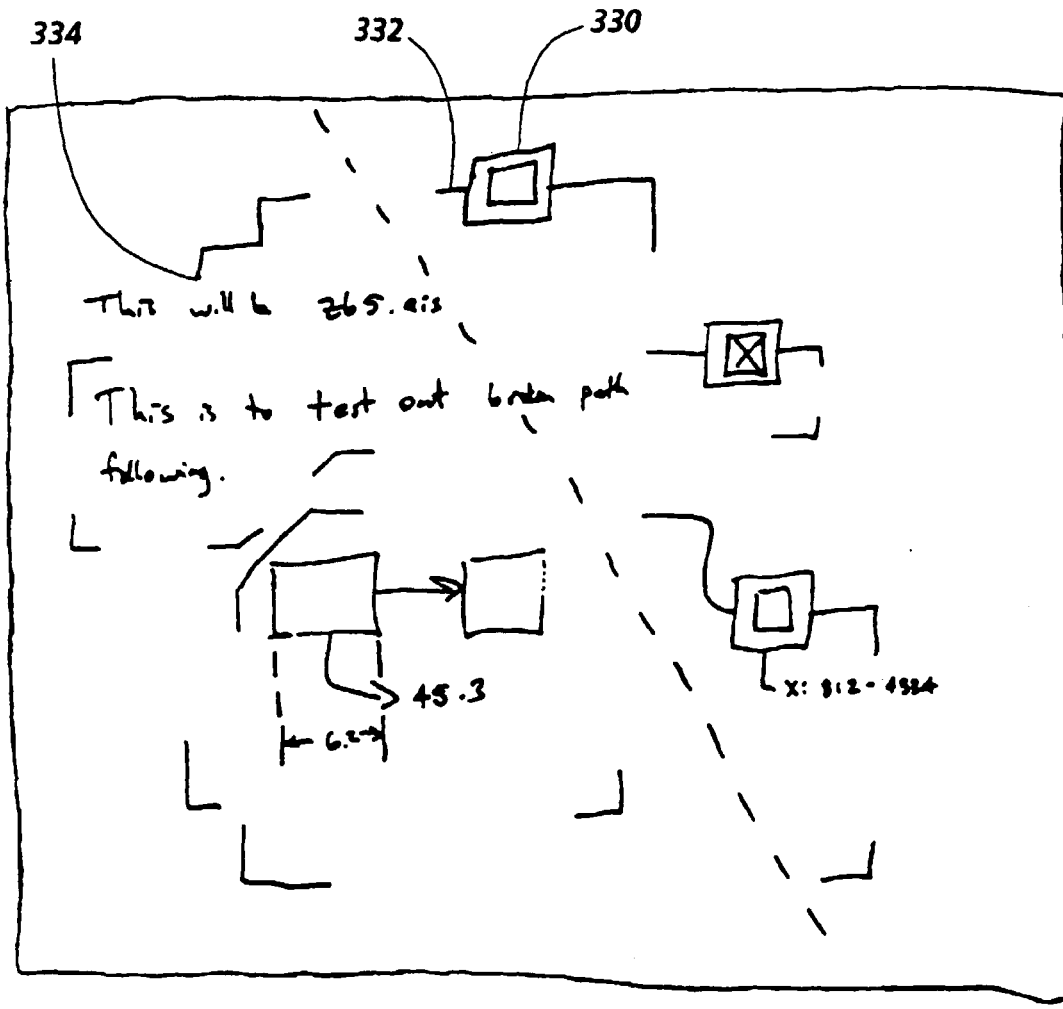 334 332 330
This will be 265.ais
This is to test out broken path
following.
45.3
X: 812-4334
6.2